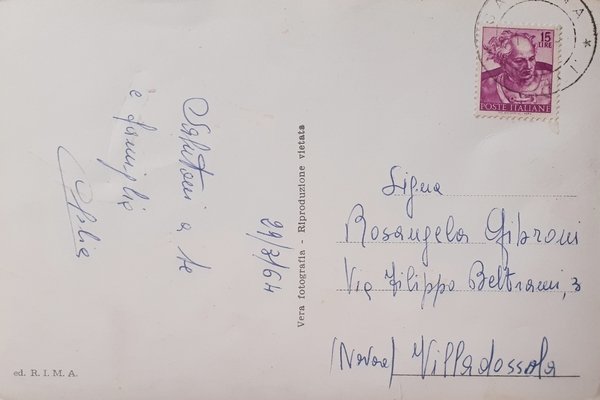 Saluti a te
e famiglia
29/7/64
Vera fotografia - Riproduzione vietata
ed. R. I. M. A.
15
LIRE
POSTE ITALIANE
Sig.na
Rosangela Gibroni
Via Filippo Beltrami, 3
(Novara) Villadossola